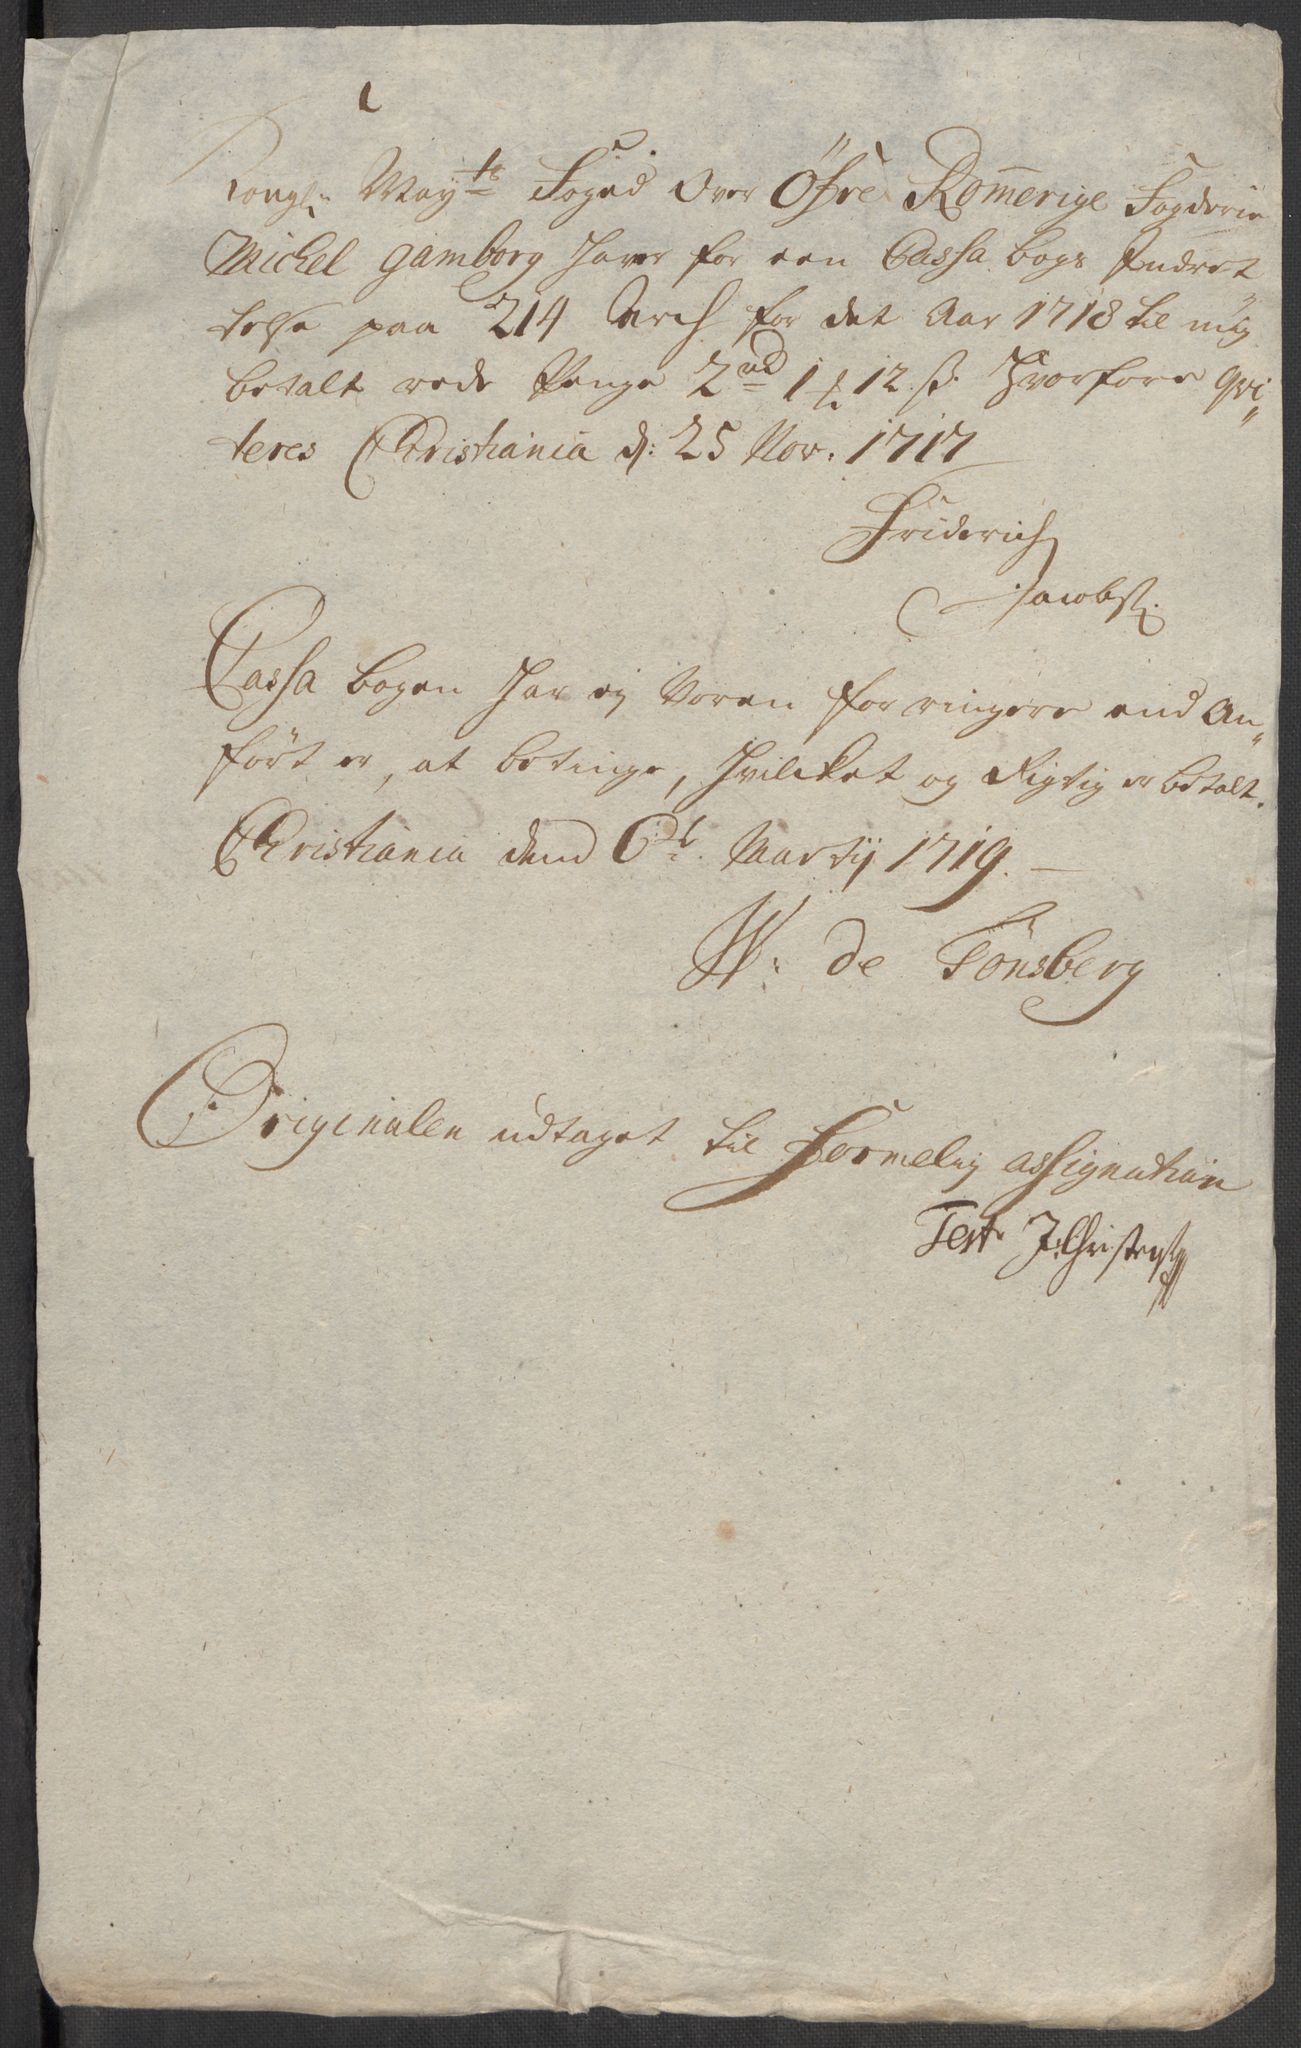 Kongl: May.tz Foged over Öfre Rom̄erige Fogderie
Michel Gamborg haver for een Cassa bogs Indret
telse paa 214 Arch for det Aar 1718 til mig
betalt rede Penge 2 rd 1 ₰ 12 ß. Hvorfore qvi„
teres Christiania d: 25 Nov: 1717
Friderich
Jacobß:
Cassa bogen har ej voren for ringere end an„
fört er, at betinge, hvilcket og Rigtig er betalt.
Christiania dend 6te Martij 1719. —
W: de Tönsberg
Originalen udtaget til Formelig assignation
Test J: Christensß